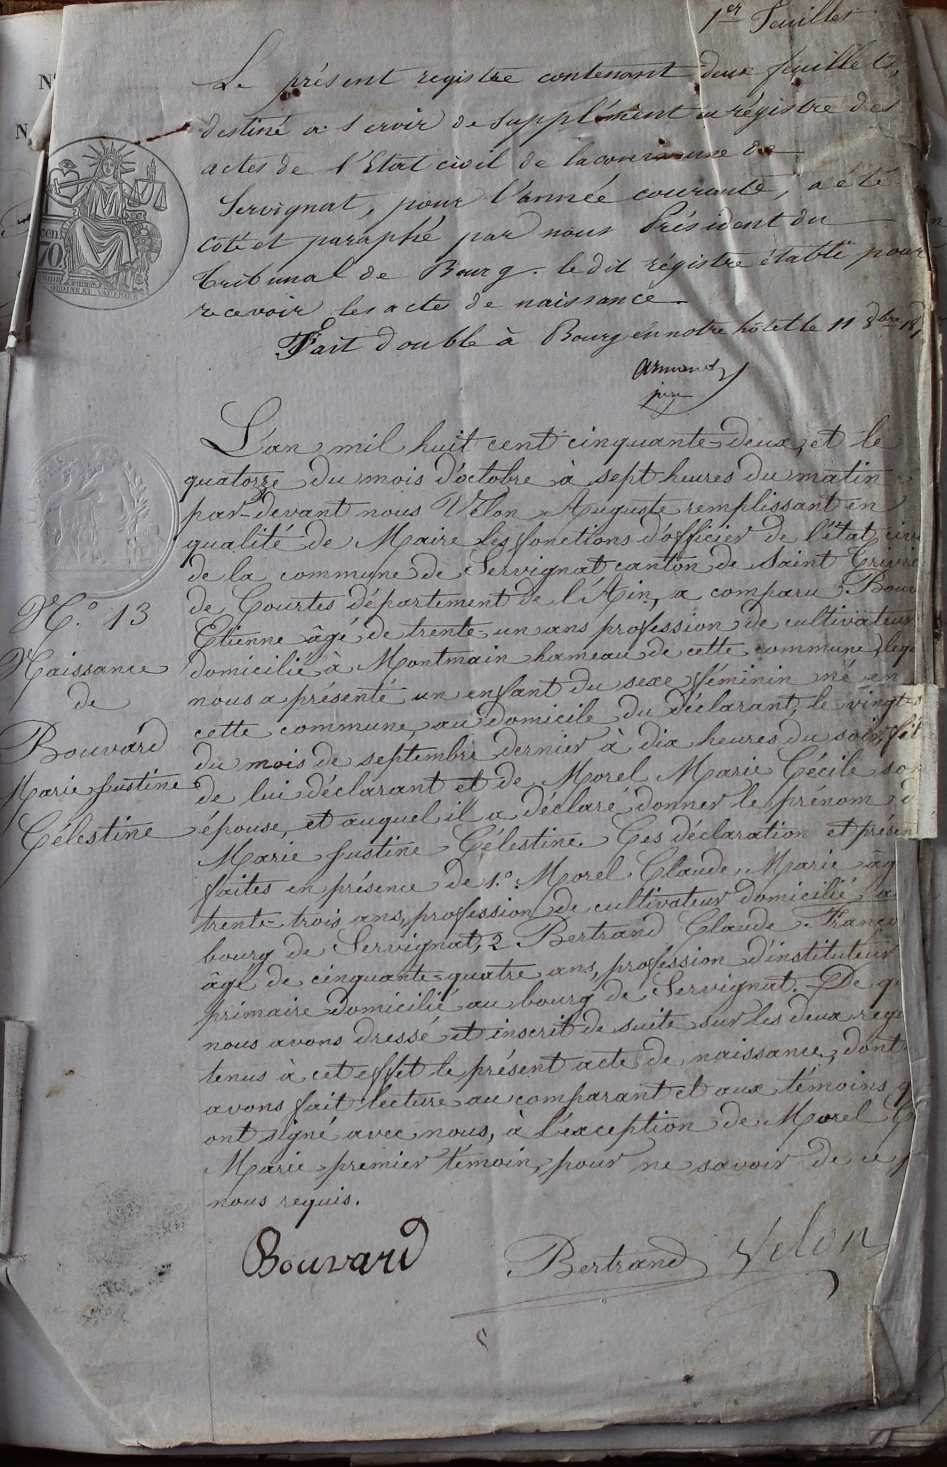 1er Feuillet
Le présent registre contenant deux feuillets,
destiné a servir de supplément au régistre des
actes de l'Etat civil de la commune de
Servignat, pour l'année courante, a été
coté et paraphé par nous Président du
tribunal de Bourg. le dit régistre établi pour
recevoir les actes de naissance.
Fait double à Bourg en notre hôtel le 11 8bre 18
L'an mil huit cent cinquante-deux, et le
quatorze du mois d'octobre à sept heures du matin
par-devant nous Vélon Auguste remplissant en
qualité de Maire les fonctions d'officier de l'état civ
de la commune de Servignat canton de Saint Trivi
N.o 13
de Courtes département de l'Ain, a comparu Bouv
Etienne âgé de trente un ans profession de cultivateur
Naissance
domicilié à Montmain hameau de cette commune, leq
de
nous a présenté un enfant du sexe féminin né en
cette commune, au domicile du déclarant, le vingt-s
Bouvard
du mois de septembre dernier à dix heures du soir, fil
Marie Justine
de lui déclarant et de Morel Marie Cécile so
Célestine
épouse, et auquel il a déclaré donner le prénom d
Marie Justine Célestine. Ces déclaration et présen
faites en présence de 1.o Morel Claude Marie âg
trente-trois ans, profession de cultivateur domicilié au
bourg de Servignat, 2 Bertrand Claude-Franço
âgé de cinquante-quatre ans, profession d'instituteur
primaire domicilié au bourg de Servignat. De q
nous avons dressé et inscrit de suite sur les deux regi
tenus à cet effet le présent acte de naissance, dont
avons fait lecture au comparant et aux témoins q
ont signé avec nous, à l'exception de Morel C
Marie premier témoin, pour ne savoir de ce p
nous requis.
Bouvard
Bertrand
Velon